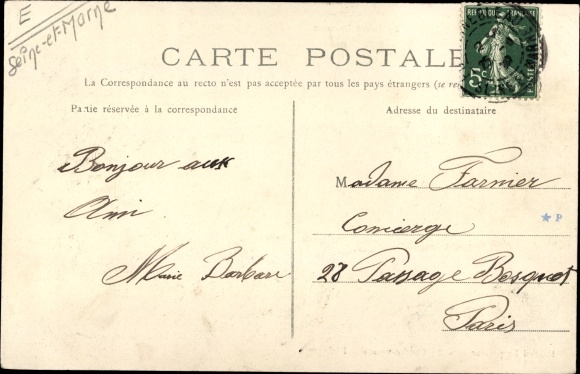 E
Seine-et-Marne
CARTE POSTALE
REPUBLIQUE FRANÇAISE
5c
La Correspondance au recto n'est pas acceptée par tous les pays étrangers (se
Partie réservée à la correspondance
Adresse du destinataire
Bonjour aux
Ami
Marie Barbare
Madame Farnier
Concierge
★ P
28 Passage Bosquet
Paris